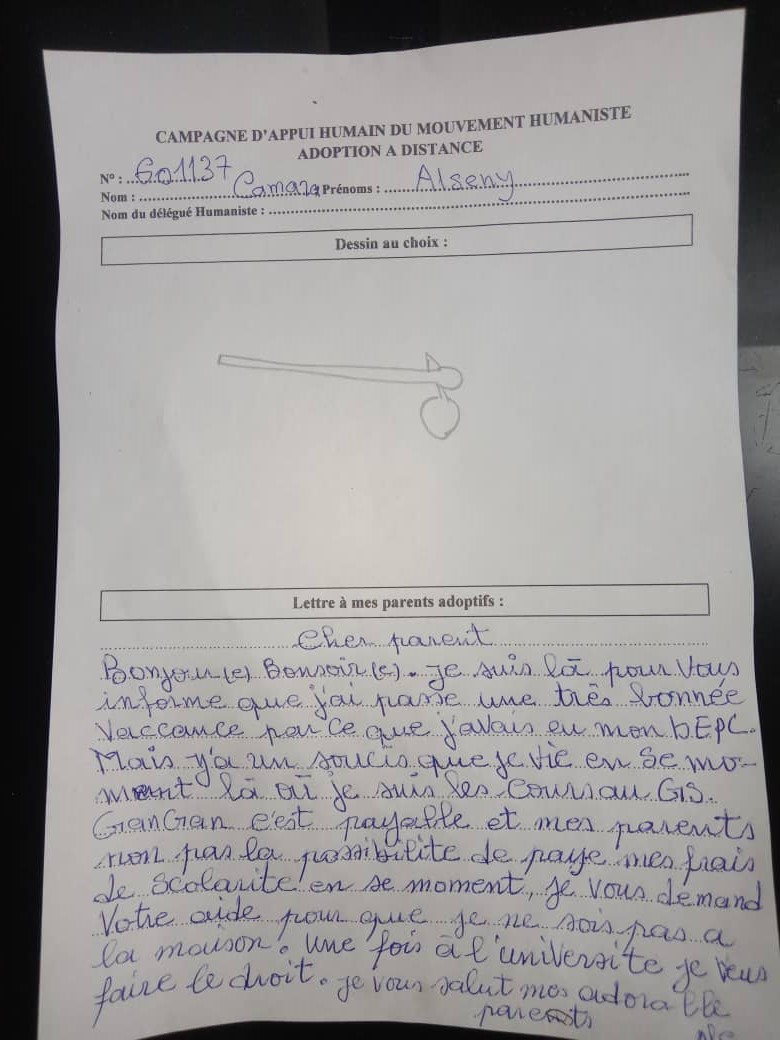 CAMPAGNE D'APPUI HUMAIN DU MOUVEMENT HUMANISTE
ADOPTION A DISTANCE
N° : G01137
Nom : Camara Prénoms : Alseny
Nom du délégué Humaniste :
Dessin au choix :
Lettre à mes parents adoptifs :
Cher parent
Bonjou(e) Bonsoir(e). je suis là pour Vous
informe que j'ai passe une três bonnée
Vaccance par ce que j'avais eu mon b.EPC.
Mais y'a un soucis que je vie en se mo-
ment là où je suis les cours au G.S.
GranGran c'est payable et mes parents
non pas la possibilite de paye mes frais
de scolarite en se moment, je vous demand
Votre aide pour que je ne sois pas a
la maison. Une fois à l'universite je veus
faire le droit. je vous salut mes adorable
parents